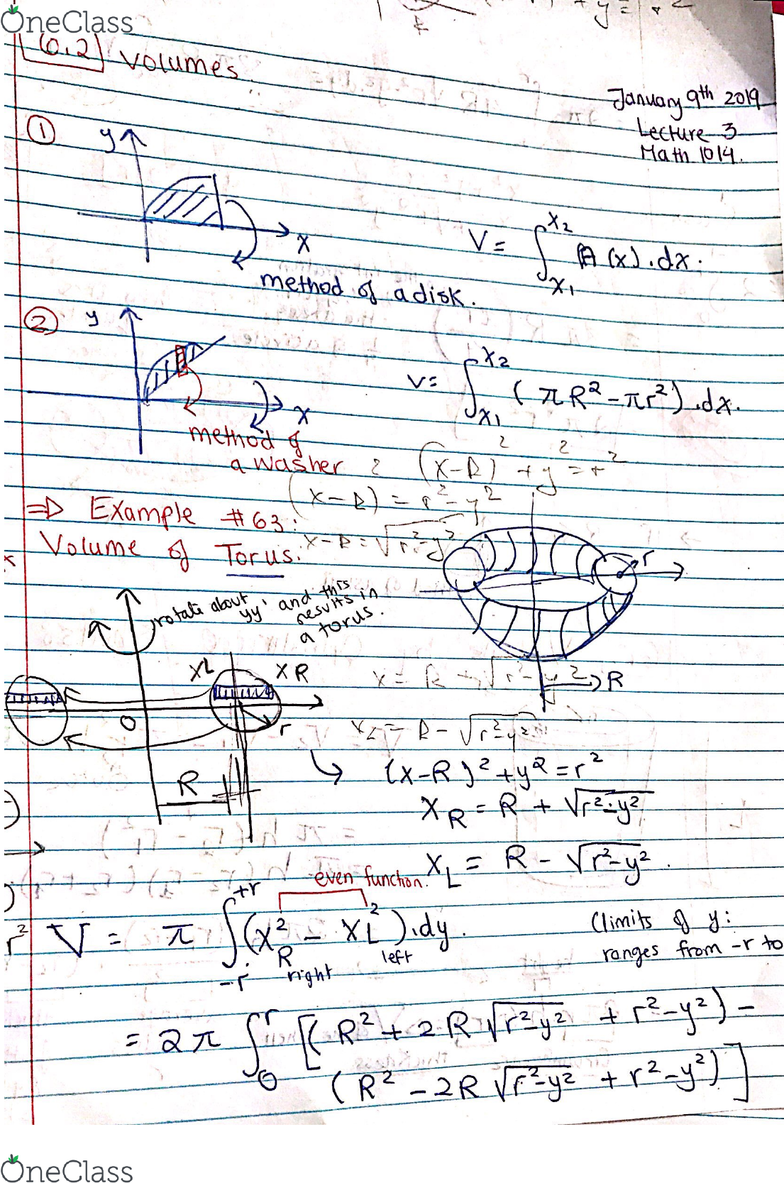 OneClass
6.2 Volumes
January 9th 2019
Lecture 3
Math 1014.
① y
x
method of a disk.
V = ∫x₁^x₂ A(x).dx.
② y
x
method of
a washer
V = ∫x₁^x₂ (πR² - πr²).dx.
(x-R)² + y² = r²
(x-R)² = r² - y²
x-R = √r²-y²
⇒ Example #63:
Volume of Torus.
r
R
rotate about yy' and this
results in
a torus.
xL xR
O
r
R
x = R + √r²-y²
xL = R - √r²-y²
(x-R)² + y² = r²
xR = R + √r²-y²
xL = R - √r²-y².
even function.
V = π ∫-r^+r (x²R - x²L).dy.
right left
(limits of y:
ranges from -r to
= 2π ∫0^r [(R² + 2R √r²-y² + r²-y²) -
(R² - 2R √r²-y² + r²-y²)]
OneClass